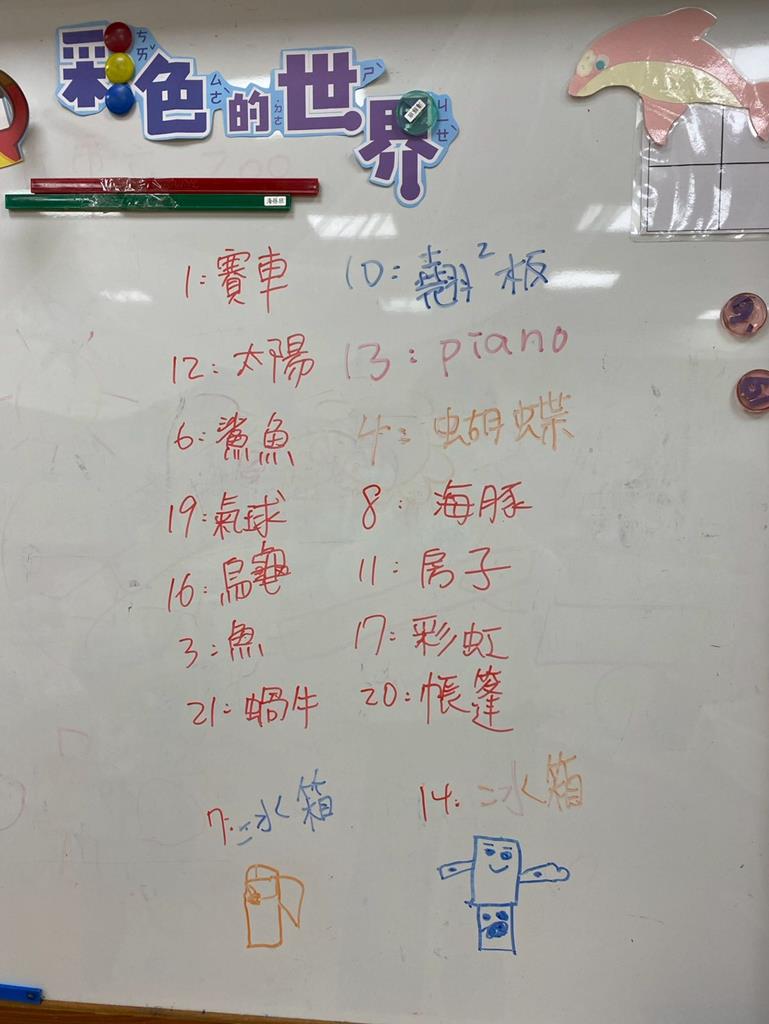 彩色的世界
ㄘㄞˇ ㄙㄜˋ ㄉㄜ˙ ㄕˋ ㄐㄧㄝˋ
海豚班
1:賽車 10:翹²板
12:太陽 13:piano
6:鯊魚 4:蝴蝶
19:氣球 8:海豚
16:烏龜 11:房子
3:魚 17:彩虹
21:蝸牛 20:帳篷
7:冰箱 14:冰箱